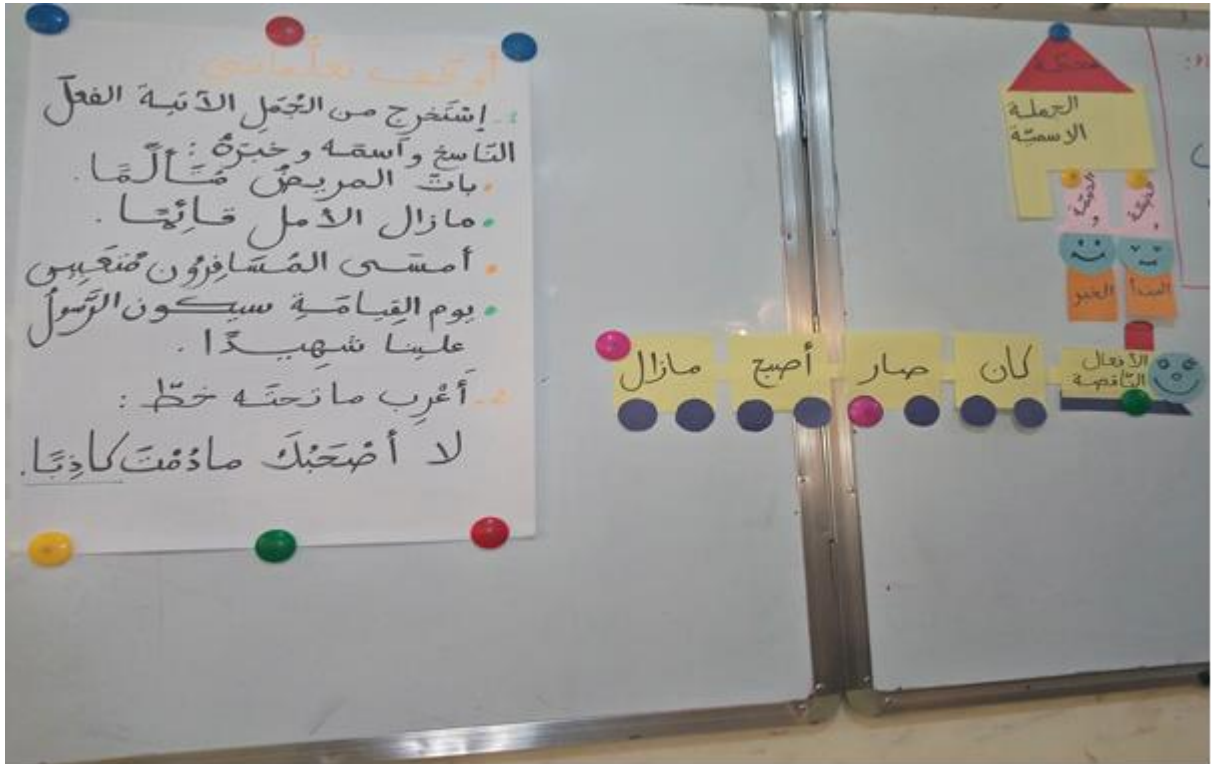 أوظف تعلماتي
إسْتَخرِج من الجُمَلِ الآتية الفعل
النّاسخ وآسمه وخبرَهُ :
باتَ المريضُ مُتَألِّمًا .
مازال الأمل قائِمًا .
أمسَى المُسَافِرُون مُتعَبِين
يوم القِيامَةِ سيكون الرَّسولُ
علينا شَهِيدًا .
أَعْرِب ما تحتَه خطّ :
لا أصْحَبُكَ مادُمْتَ كاذِبًا .
محطّة
الجملة
الاسميّة
الضمّة و
الضمّة و
المبتدأ الخبر
الأفعال
النّاقصة
كان صار أصبح مازال